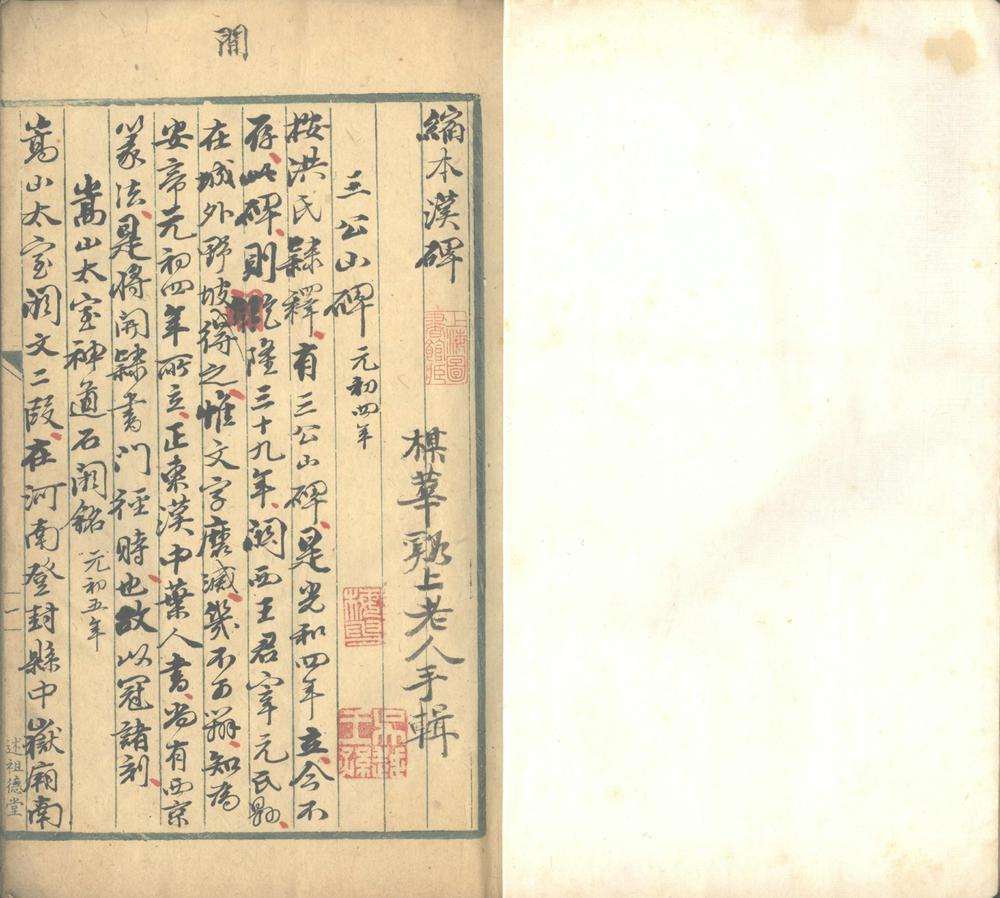 閒
縮本漢碑 楳華谿上老人手輯
上海圖書館藏
三公山碑 元初四年
梅谿
吳越王孫
桉洪氏隸釋有三公山碑是光和四年立今不
存此碑則乾隆三十九年關西王君宰元氏縣
在城外野坡得之惟文字磨滅幾不可辨知為
安帝元初四年所立正東漢中葉人書尚有西京
篆法是將開隸書門徑時也故以冠諸刻
嵩山太室神道石闕銘 元初五年
嵩山太室闕文二段在河南登封縣中嶽廟南
一
述祖德堂